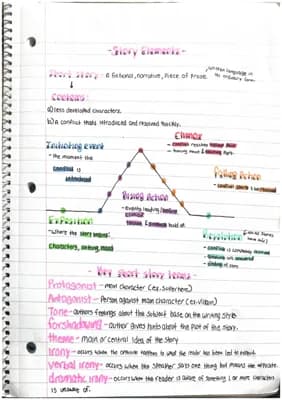 - Story Elements -
Short Story - a fictional, narrative, piece of prose. (written language in its ordinary form)
Contains:
a) less developed characters.
b) a conflict thats introduced and resolved quickly.
Climax
- conflict reaches
- turning point &
Initiating event
- the moment the
conflict is
introduced
Falling Action
- conflict starts
Rising Action
- events leading
climax
- & build up.
Exposition
- Where the story begins:
Characters, setting, mood
Resolution
- conflict is
- are answered
- ending of story
- Key short story terms -
Protagonist - main character (ex. Superhero)
Antagonist - Person against main character (ex. Villain)
Tone - authors feelings about the subject base on the writing style
forshadowing - author gives hints about the plot of the story.
theme - main or central idea of the story
irony - occurs when the opposite happens to what the reader has been led to expect.
verbal irony - occurs when the speaker says one thing but means the opposite.
dramatic irony - occurs when the reader is aware of something 1 or more characters
is unaware of.